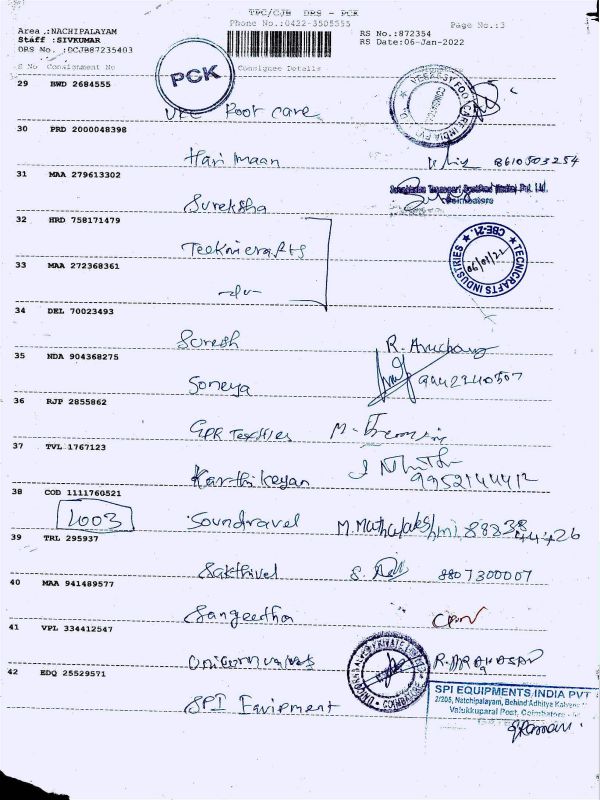 TPC/CJB DRS - PCK
Phone No.:0422-3505555
Page No.:3
Area :NACHIPALAYAM
Staff :SIVKUMAR
DRS No. :DCJB87235403
RS No.:872354
RS Date:06-Jan-2022
S No Consignment No Consignee Details
PCK
29 BWD 2684555
Foot care
30 PRD 2000048398
Hari maan 8610503254
31 MAA 279613302
Sureksha
Coimbatore
32 HRD 758171479
Tecknicrafts
TECNICRAFTS INDUSTRIES ★ CBE-21. ★
06/01/22
33 MAA 272368361
-do-
34 DEL 70023493
Suresh
35 NDA 904368275
Soneya 9442240507
36 RJP 2855862
GPR Textiles
37 TVL 1767123
Karthikeyan 9952144412
38 COD 1111760521
1003 Soundravel
39 TRL 295937
Sakthivel 8807300007
40 MAA 941489577
Sangeetha
41 VPL 334412547
42 EDQ 25529571
SPI Equipment
SPI EQUIPMENTS INDIA PVT
2/205, Natchipalayam, Behind Adhitya
Valukkuparai Post, Coimbatore